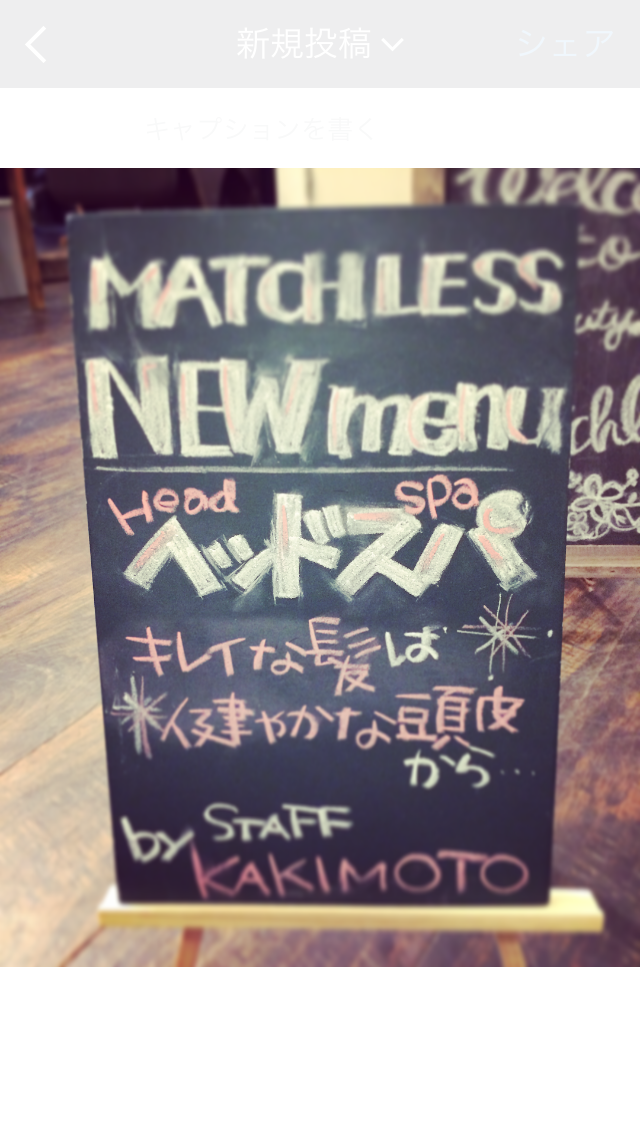 新規投稿
シェア
キャプションを書く
MATCHLESS
NEW menu
Head spa
ヘッドスパ
キレイな髪は
健やかな頭皮
から…
by STAFF
KAKIMOTO
Welco
to